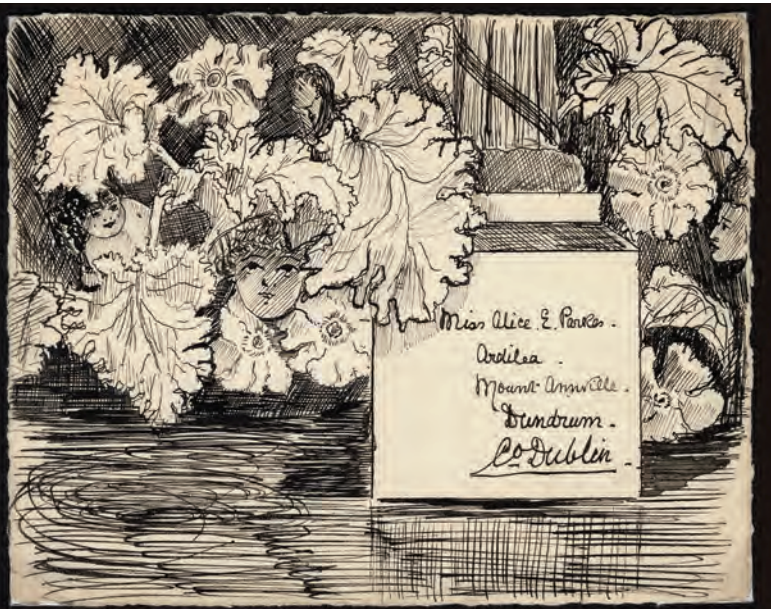 Miss Alice E. Parkes.
Ardilea.
Mount Annville.
Dundrum.
Co Dublin.